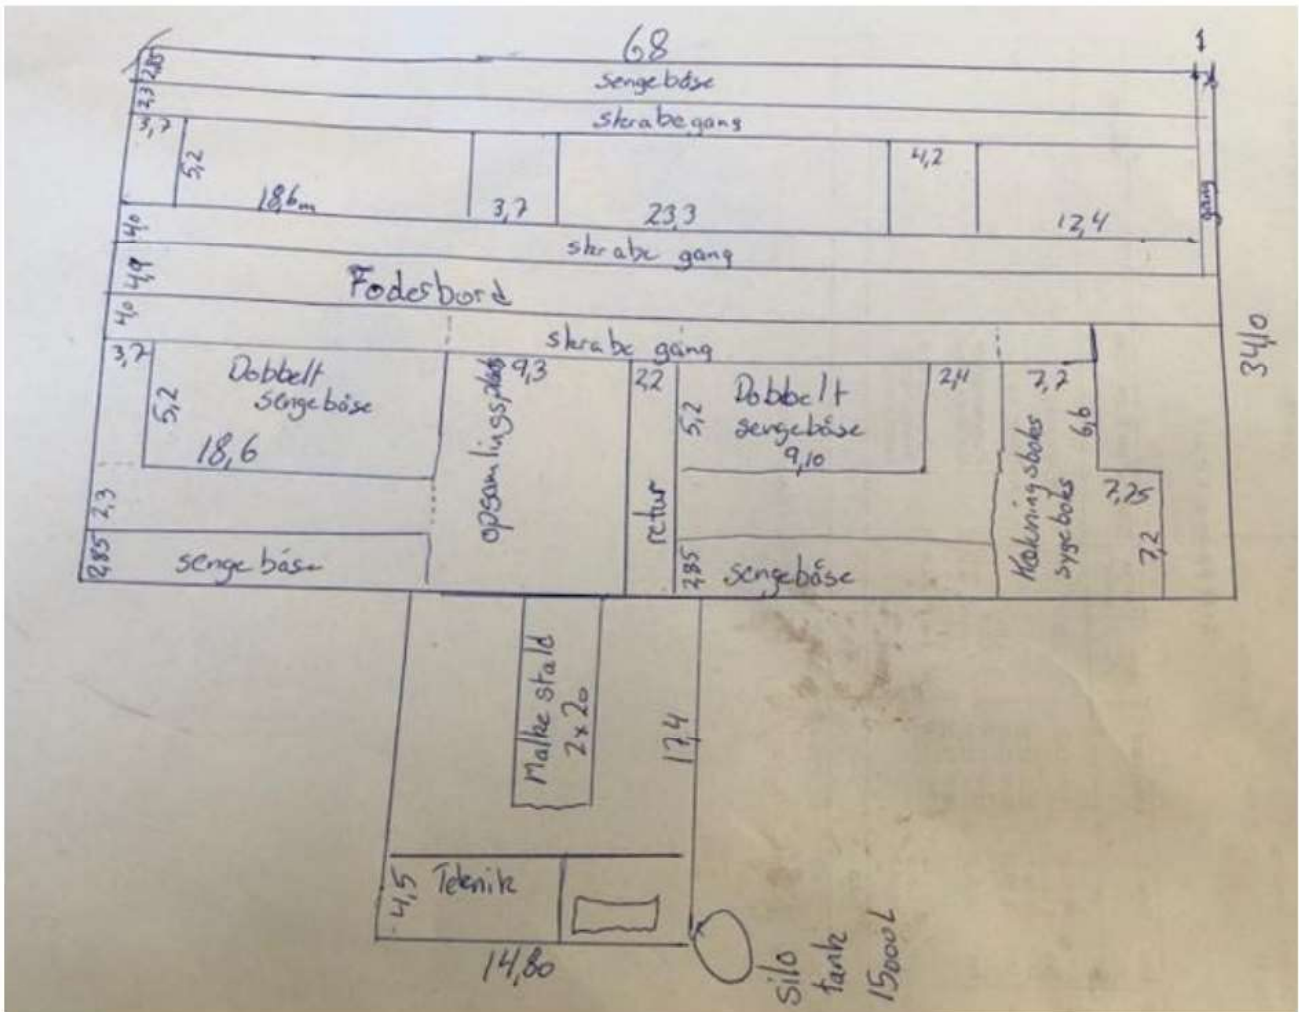 68
1
2,85
sengebåse
2,3
skrabegang
3,7
5,2
18,6m
3,7
23,3
4,2
12,4
gang
4,0
skrabe gang
4,9
Foderbord
34,0
4,0
skrabe gang
3,7
5,2
Dobbelt
sengebåse
18,6
opsamlingsplads
9,3
2,2
retur
5,2
Dobbelt
sengebåse
9,10
2,4
7,7
6,6
Kælvningsboks
sygeboks
7,25
7,2
2,3
2,85
sengebåse
2,85
sengebåse
Malke stald
2x20
17,4
4,5
Teknik
14,80
silo
tank
15000L